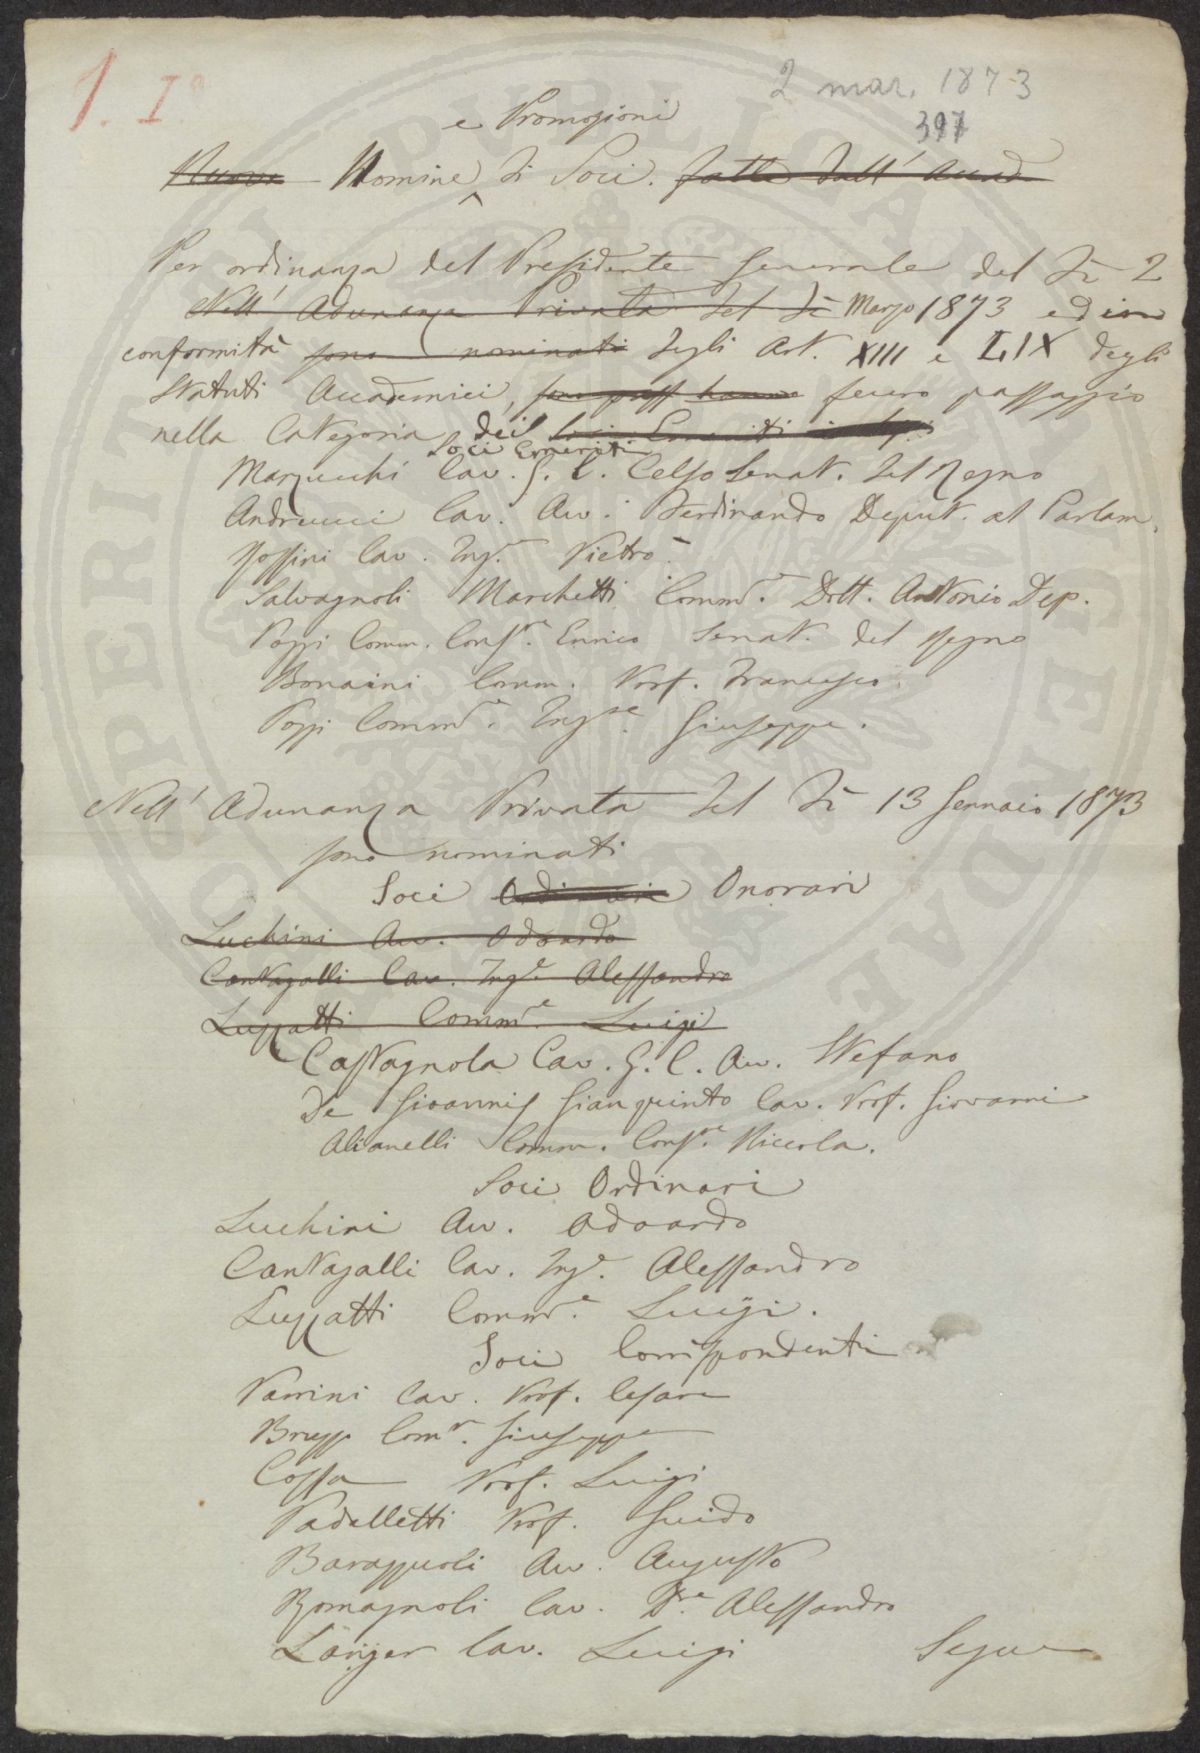 1. I°
2 mar. 1873
397
e Promozioni
Nuove Nomine di Soci. fatte dall' Accad.
Per ordinanza del Presidente Generale del dì 2
Nell' Adunanza Privata del dì Marzo 1873 ed in
conformità sono nominati degli Art. XIII e LIX degli
Statuti Accademici, fecero passaggio
nella Categoria dei Soci Emeriti
Soci Emeriti
Marzucchi Cav. G. C. Celso Senat. del Regno
Andreucci Cav. Avv. Ferdinando Deput. al Parlam.
Rossini Cav. Ing.e Pietro
Salvagnoli Marchetti Comm.e Dott. Antonio Dep.
Poggi Comm. Cons.re Enrico Senat. del Regno
Bonaini Comm. Prof. Francesco.
Poggi Comm.e Ing.re Giuseppe.
Nell' Adunanza Privata del dì 13 Gennaio 1873
sono nominati
Soci Ordinari Onorari
Luchini Avv. Odoardo
Cantagalli Cav. Ing.e Alessandro
Luzzatti Comm.e Luigi
Castagnola Cav. G. C. Avv. Stefano
De Gioannis Gianquinto Cav. Prof. Giovanni
Alianelli Comm. Cons.re Niccola.
Soci Ordinari
Luchini Avv. Odoardo
Cantagalli Cav. Ing.e Alessandro
Luzzatti Comm.e Luigi.
Soci Corrispondenti
Parrini Cav. Prof. Cesare
Comm.r Giuseppe
Cossa Prof. Luigi
Padelletti Prof. Guido
Barazzuoli Avv. Augusto
Romagnoli Cav. D.re Alessandro
Langer Cav. Luigi
Segue
PUBLICAE PROSPERITATI AUGENDAE